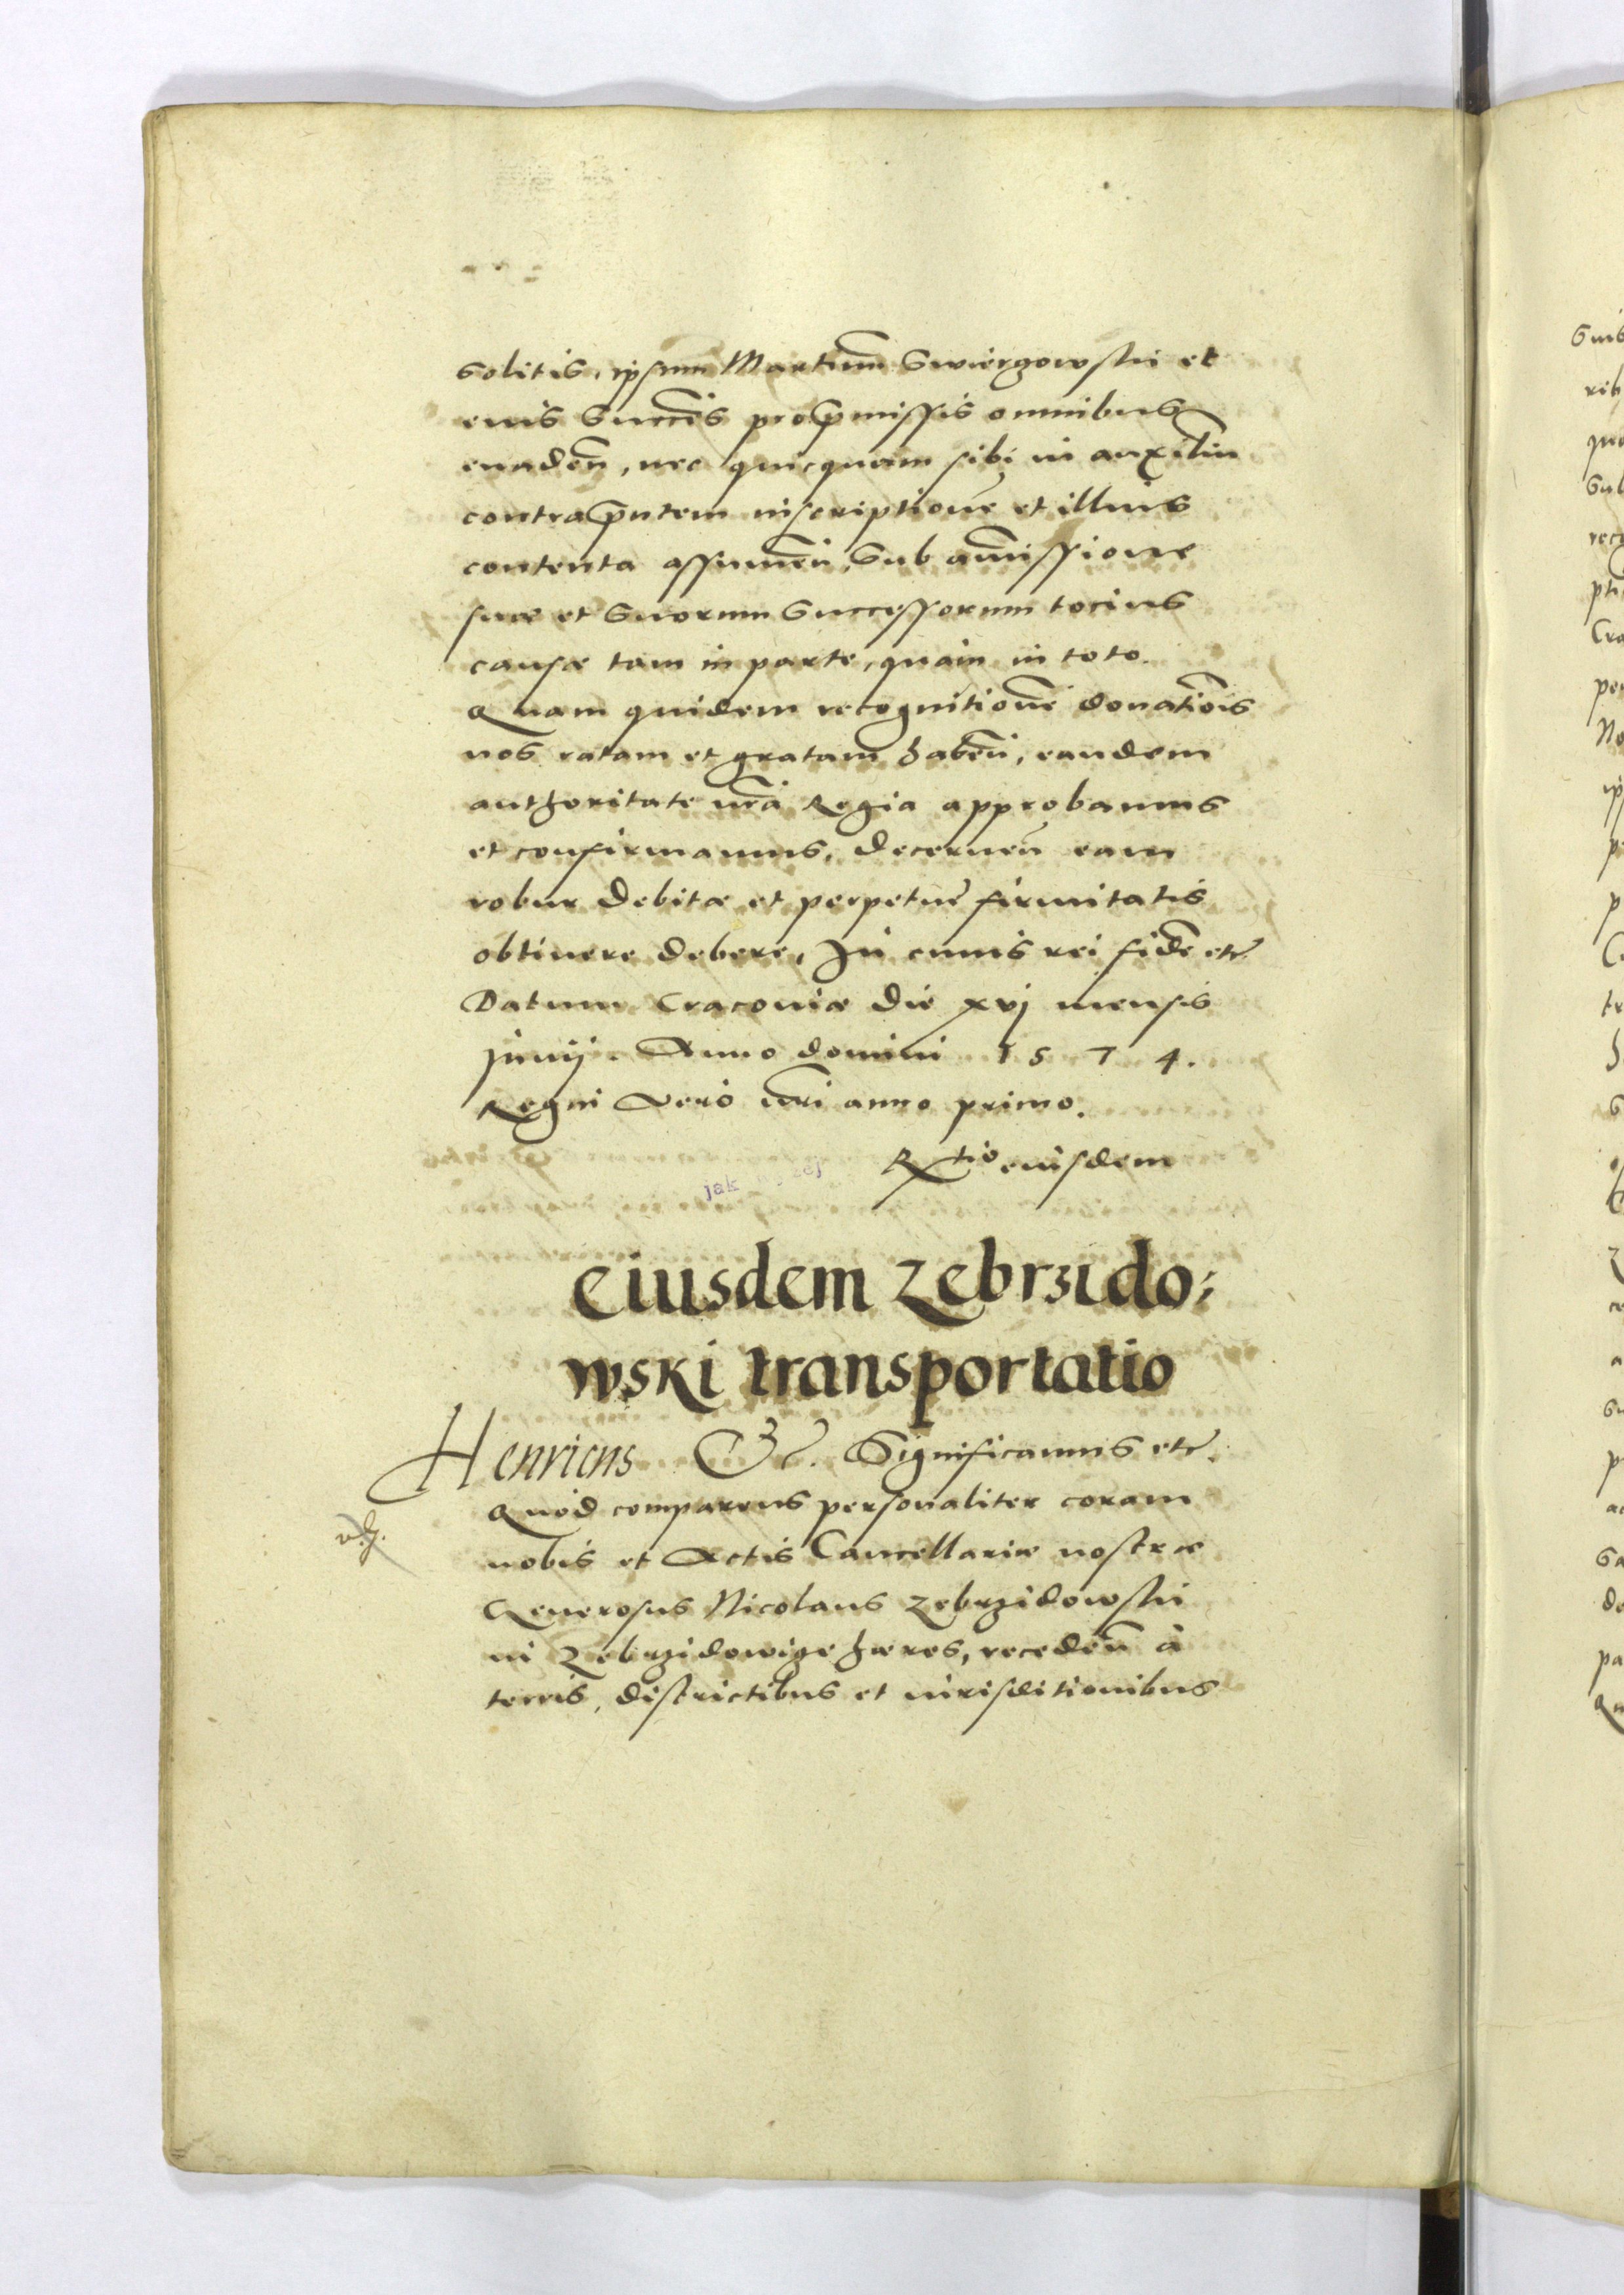 solitis, ipsum Martinum Swiergowski et
eius Succēs pro p̄missis omnibus
euadeñ, nec quicquam sibi in auxiliū
contra p̄ntem inscriptionē et illius
contenta assumeñ, Sub amissione
suae et Suorum Successorum tocius
causae tam in parte, quam in toto.
Quam quidem recognitionē donatiōis
nos ratam et gratam habeñ, eandem
authoritate nrã Regia approbamus
et confirmamus, decerneñ eam
robur debitae et perpetuae firmitatis
obtinere debere, In cuius rei fidē etc
Datum Cracouiae die xvj mensis
Junij. Anno domini 1574.
Regni vero nrī anno primo.
Rtio eiusdem
jak
eiusdem Zebrzido:
wski transportatio
Henricus &c. Significamus etc.
Quod comparens personaliter coram
nobis et Actis Cancellariae nostrae
Generosus Nicolaus Zebrzidowski
in Zebrzidowize haeres, recedeñ à
terris, districtibus et iurisditionibus